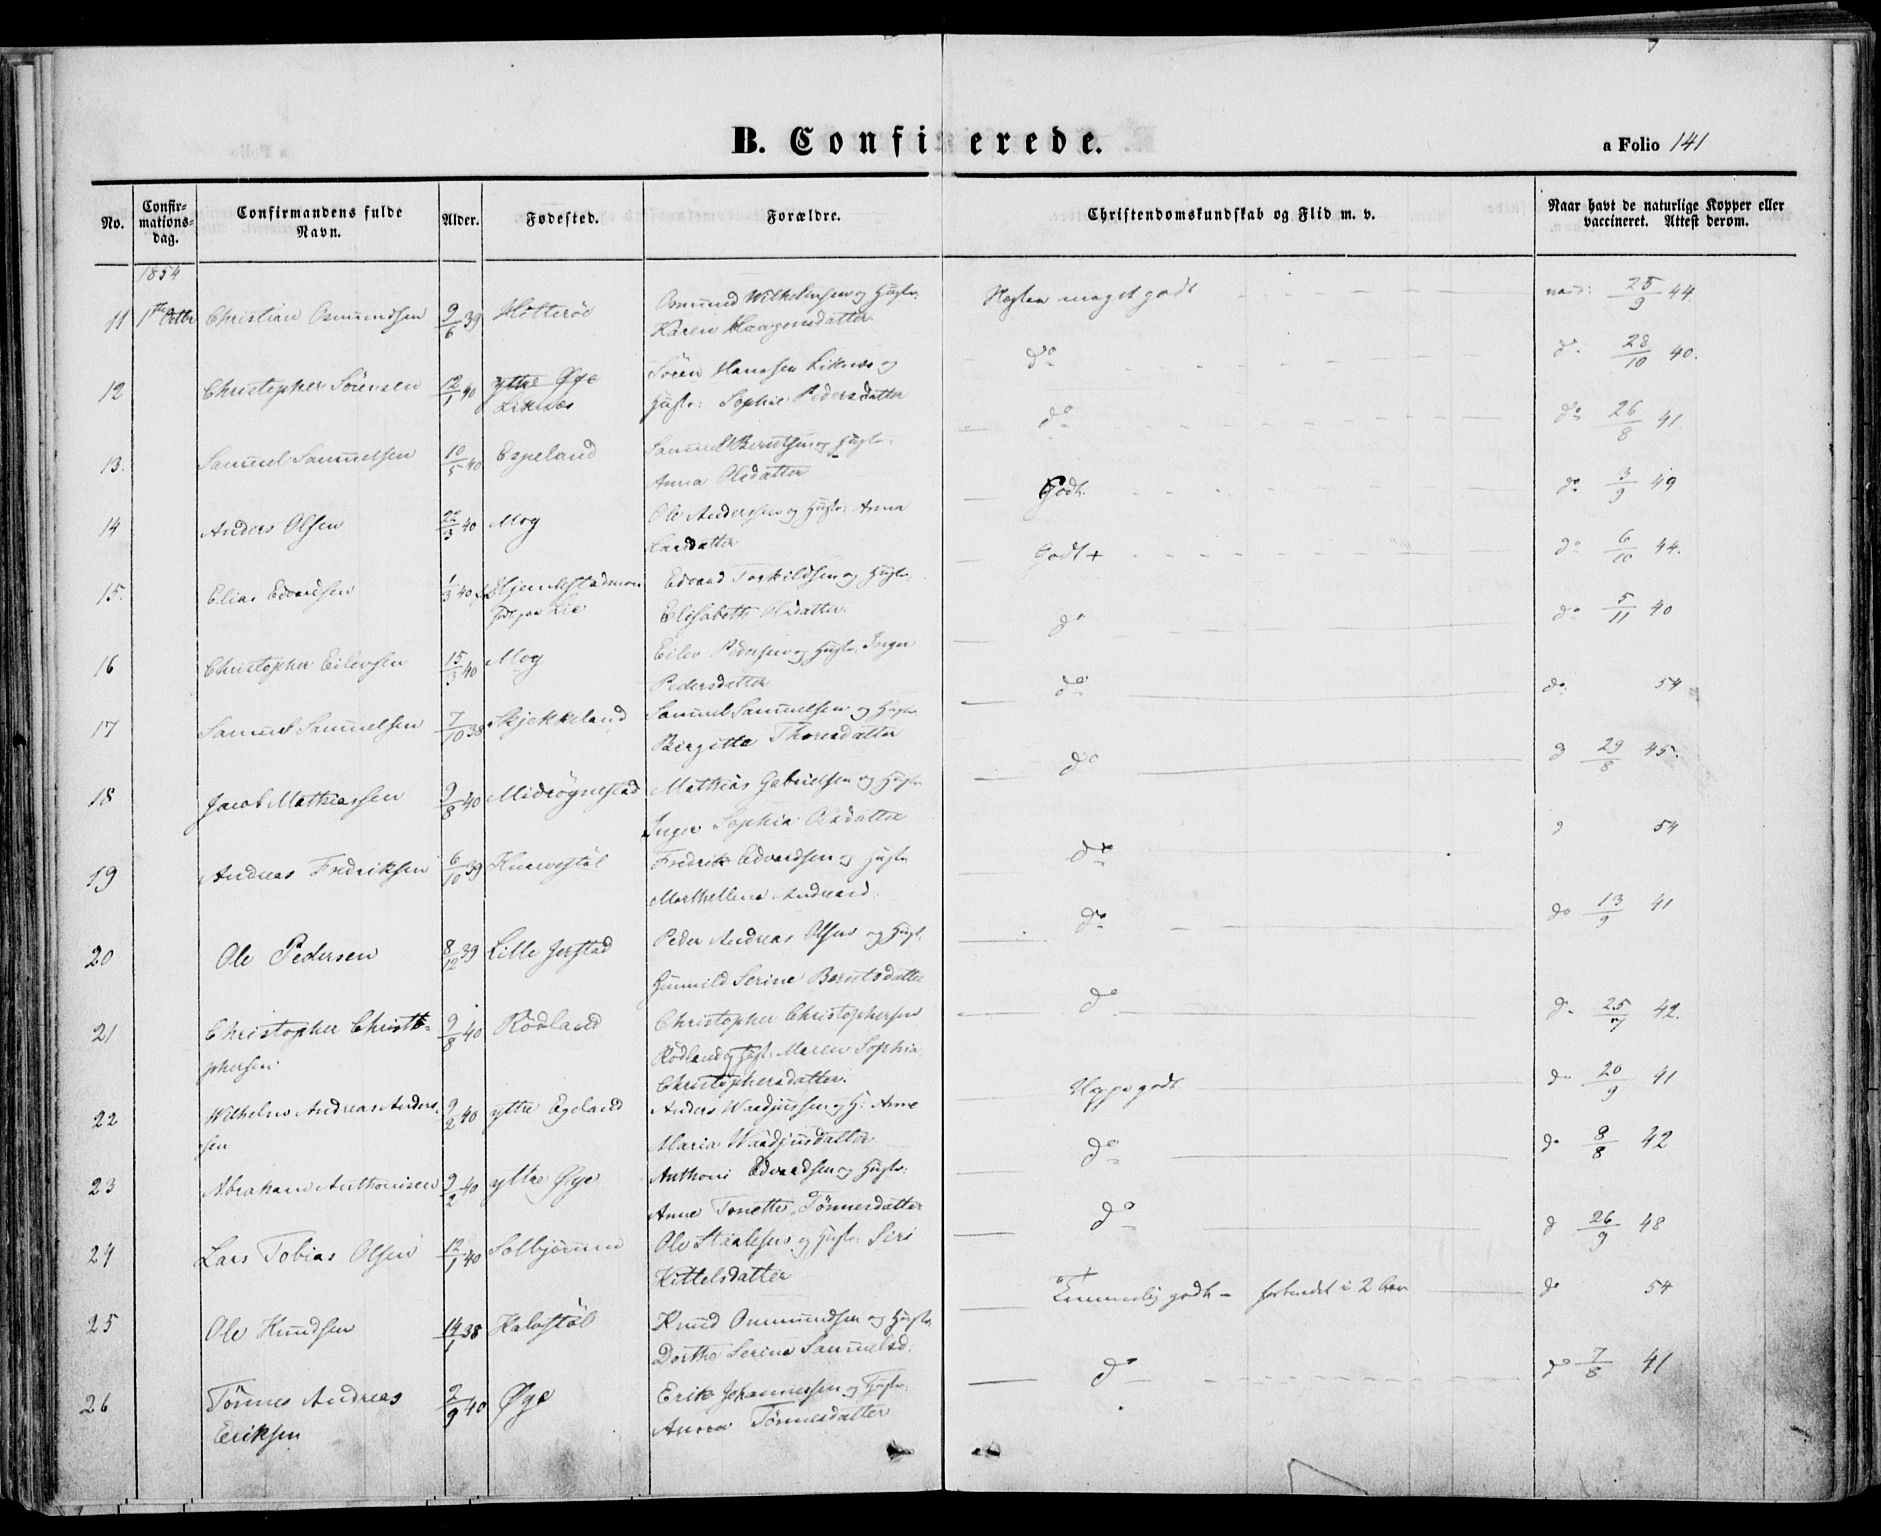 B. Confirmerede.
a Folio 141
No. Confirmations-dag. Confirmandens fulde Navn. Alder. Fødested. Forældre. Christendomskundskab og Flid m. v. Naar havt de naturlige Kopper eller vaccineret. Attest derom.
1854
11 1ste Octbr Christian Osmundsen 9/6 39 Osmund Wilhelmsen og Hustr: Karen Haagensdatter meget godt 25/9 44
12 Christopher Sörensen 12/1 40 ytre Øye Liknæs Sören Hansen Liknæs og Hustr: Sophie Pedersdatter do 28/10 40.
13. Samuel Samuelsen 10/5 40 Espeland Samuel Berntsen og Hustr: Anna Olsdatter do do 26/8 41.
14 Anders Olsen 22/3 40 Moy Ole Andersen og Hustr: Anna Larsdatter Godt. do 3/9 49
15. Elias Edvardsen 1/3 40 Lie Edvard Torkildsen og Hustr: Elisabeth Olsdatter Godt + do 6/10 44.
16 Christopher Eilevsen 15/3 40 Moy Eilev Pedersen og Hustr: Inger Pedersdatter do do 5/11 40
17 Samuel Samuelsen 7/10 38 Skjekkeland Samuel Samuelsen og Hustr Birgitte Thorsdatter do do 54
18 Jacob Mathiassen 9/8 40 Midtögnestad Mathias Gabrielsen og Hustr Inger Sophia Olsdatter do d 29/8 45.
19 Andreas Fredriksen 6/10 39 Fredrik Edvardsen og Hustr Marthelline Andreasd: do 54
20 Ole Pedersen 8/12 39 Lille Jerstad Peder Andreas Olsen og Hustr. Gunnild Serine Berntsdatter do do 13/9 41
21 Christopher Christophersen 9/8 40 Rödland Christopher Christophersen Rödland og Hustr: Maren Sophia Christophersdatter. do 25/ 42.
22 Wilhelm Andreas Andersen 9/2 40 ytre Egeland Anders og H: Anne Maria godt do 20/9 41
23 Abraham Anthonisen 9/2 40 ytre Øye Anthoni Edvardsen og Hustr: Anne Tonette Tönnesdatter do do 9/8 42
24 Lars Tobias Olsen 12/1 40 Ole og Hustr: Siri Kittelsdatter do d 26/9 48
25 Ole Knudsen 14/1 38 Kalvstöl Knud Osmundsen og Hustr Dorthe Serine Samuelsd: Temmelig godt – do 54
26 Tönnes Andreas Eriksen 2/9 40 Øye Erik Johannessen og Hustr: Tönnesdatter do do 7/8 41